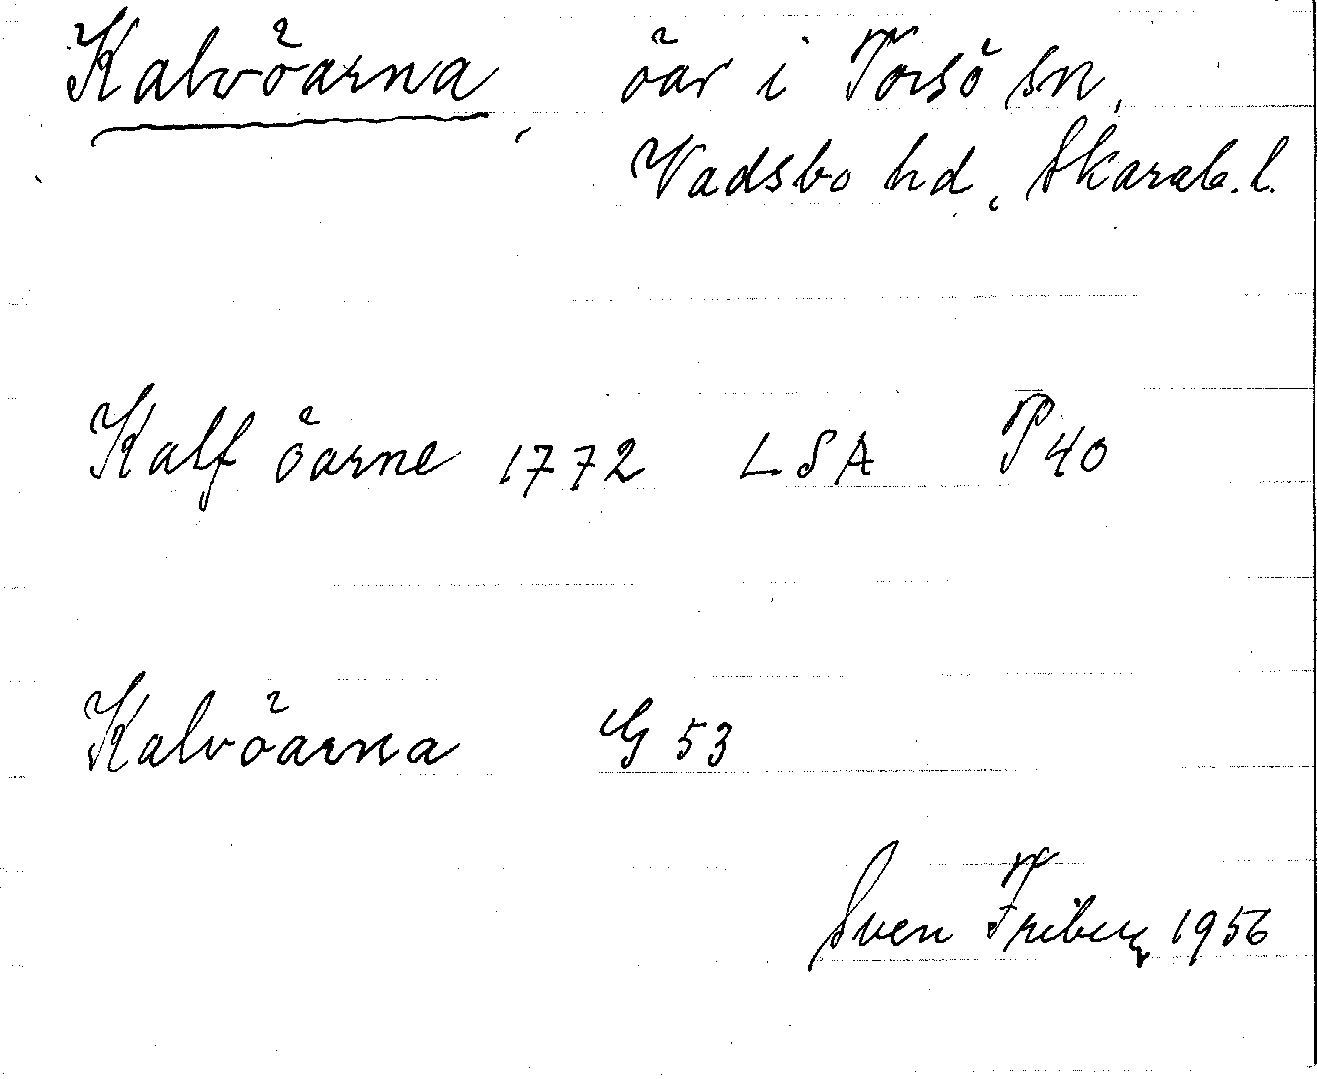 Kalvöarna, öar i Torsö sn,
Vadsbo hd, Skarab. l.
Kalf öarne 1772 LSA P 40
Kalvöarna G 53
Sven Friberg 1956